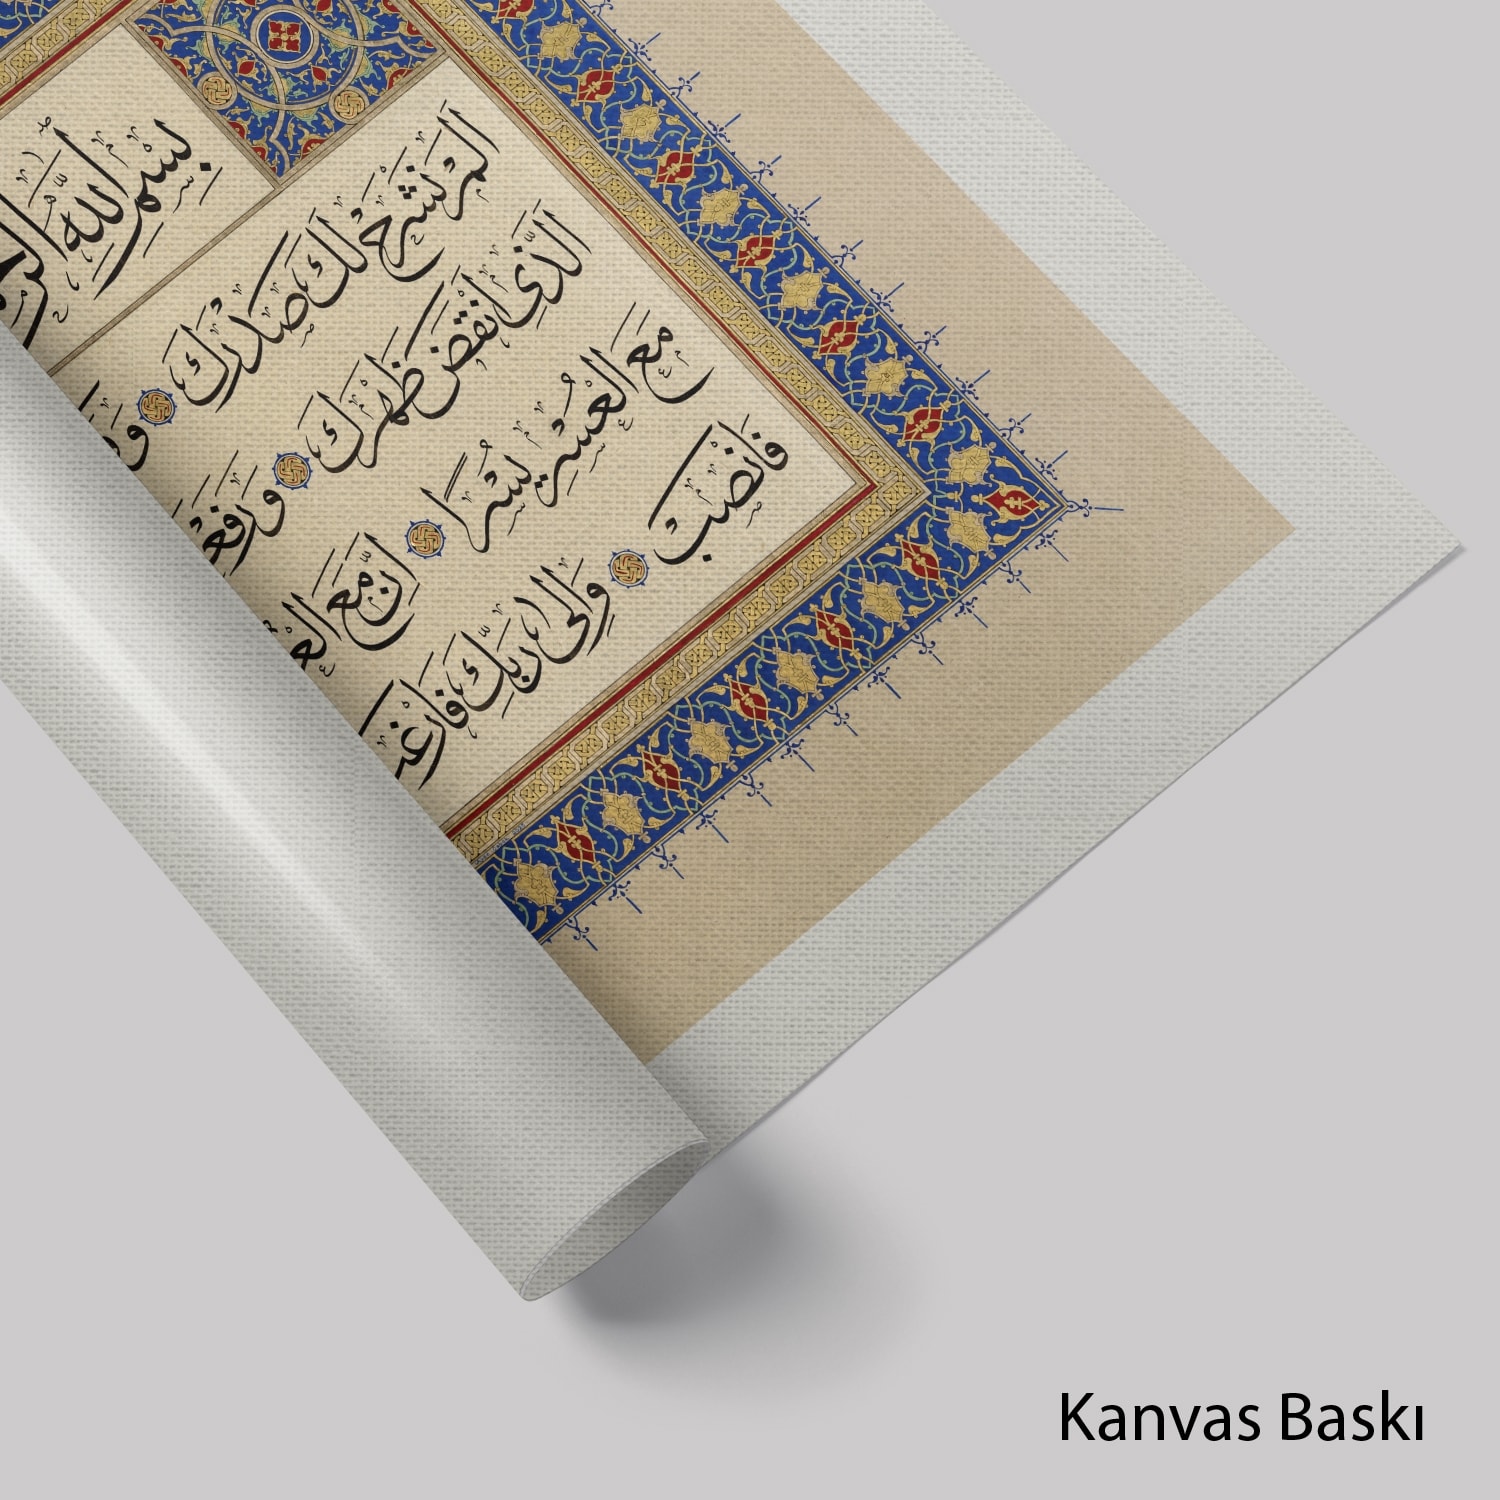 بِسْمِ اللهِ
اَلَمْ نَشْرَحْ لَكَ صَدْرَكَ
اَلَّذِى اَنْقَضَ ظَهْرَكَ وَرَفَعْ
مَعَ الْعُسْرِ يُسْرًا اِنَّ مَعَ الْعُ
فَانْصَبْ وَاِلٰى رَبِّكَ فَارْغَبْ
Kanvas Baskı